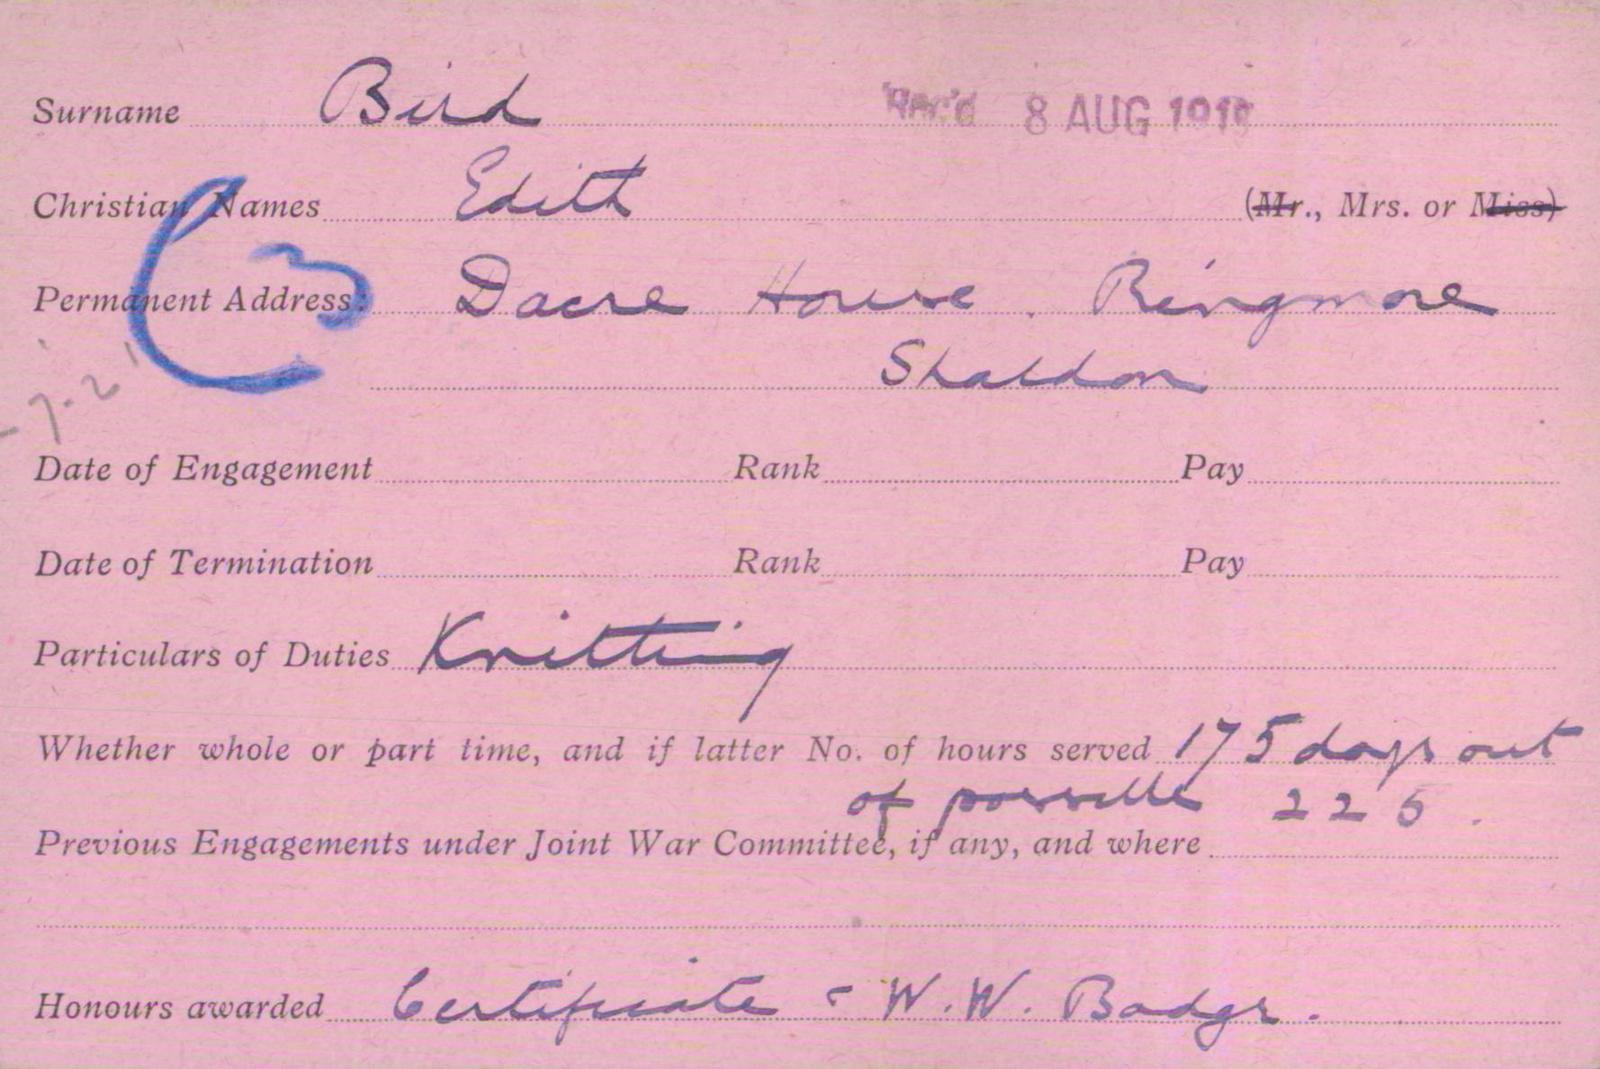 Surname Bird Rec'd 8 AUG 1919
Christian Names Edith (Mr., Mrs. or Miss)
Permanent Address: Dacre House. Ringmore
Shaldon
7.2
Date of Engagement Rank Pay
Date of Termination Rank Pay
Particulars of Duties Knitting
Whether whole or part time, and if latter No. of hours served 175 days out
of possible 225.
Previous Engagements under Joint War Committee, if any, and where
Honours awarded Certificate & W.W. Badge.